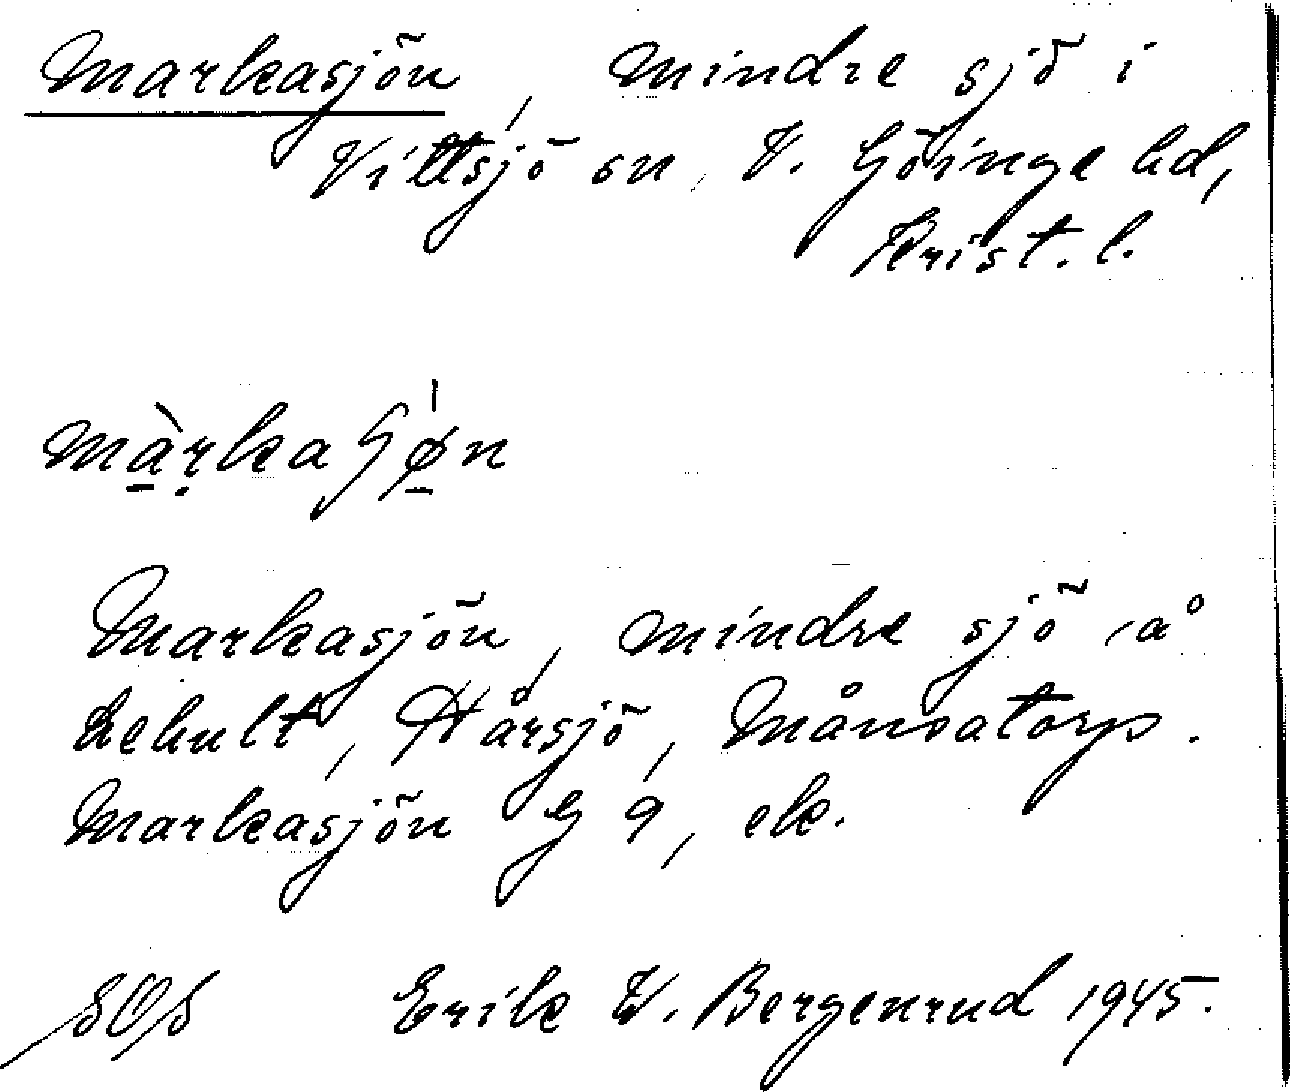 Markasjön, mindre sjö i
Vittsjö sn, V. Göinge hd,
Krist. l.
Markasjön, mindre sjö å
Lehult, Hårsjö, Månsatorp.
Markasjön G 9, ek.
SOS Erik W. Bergenrud 1945.